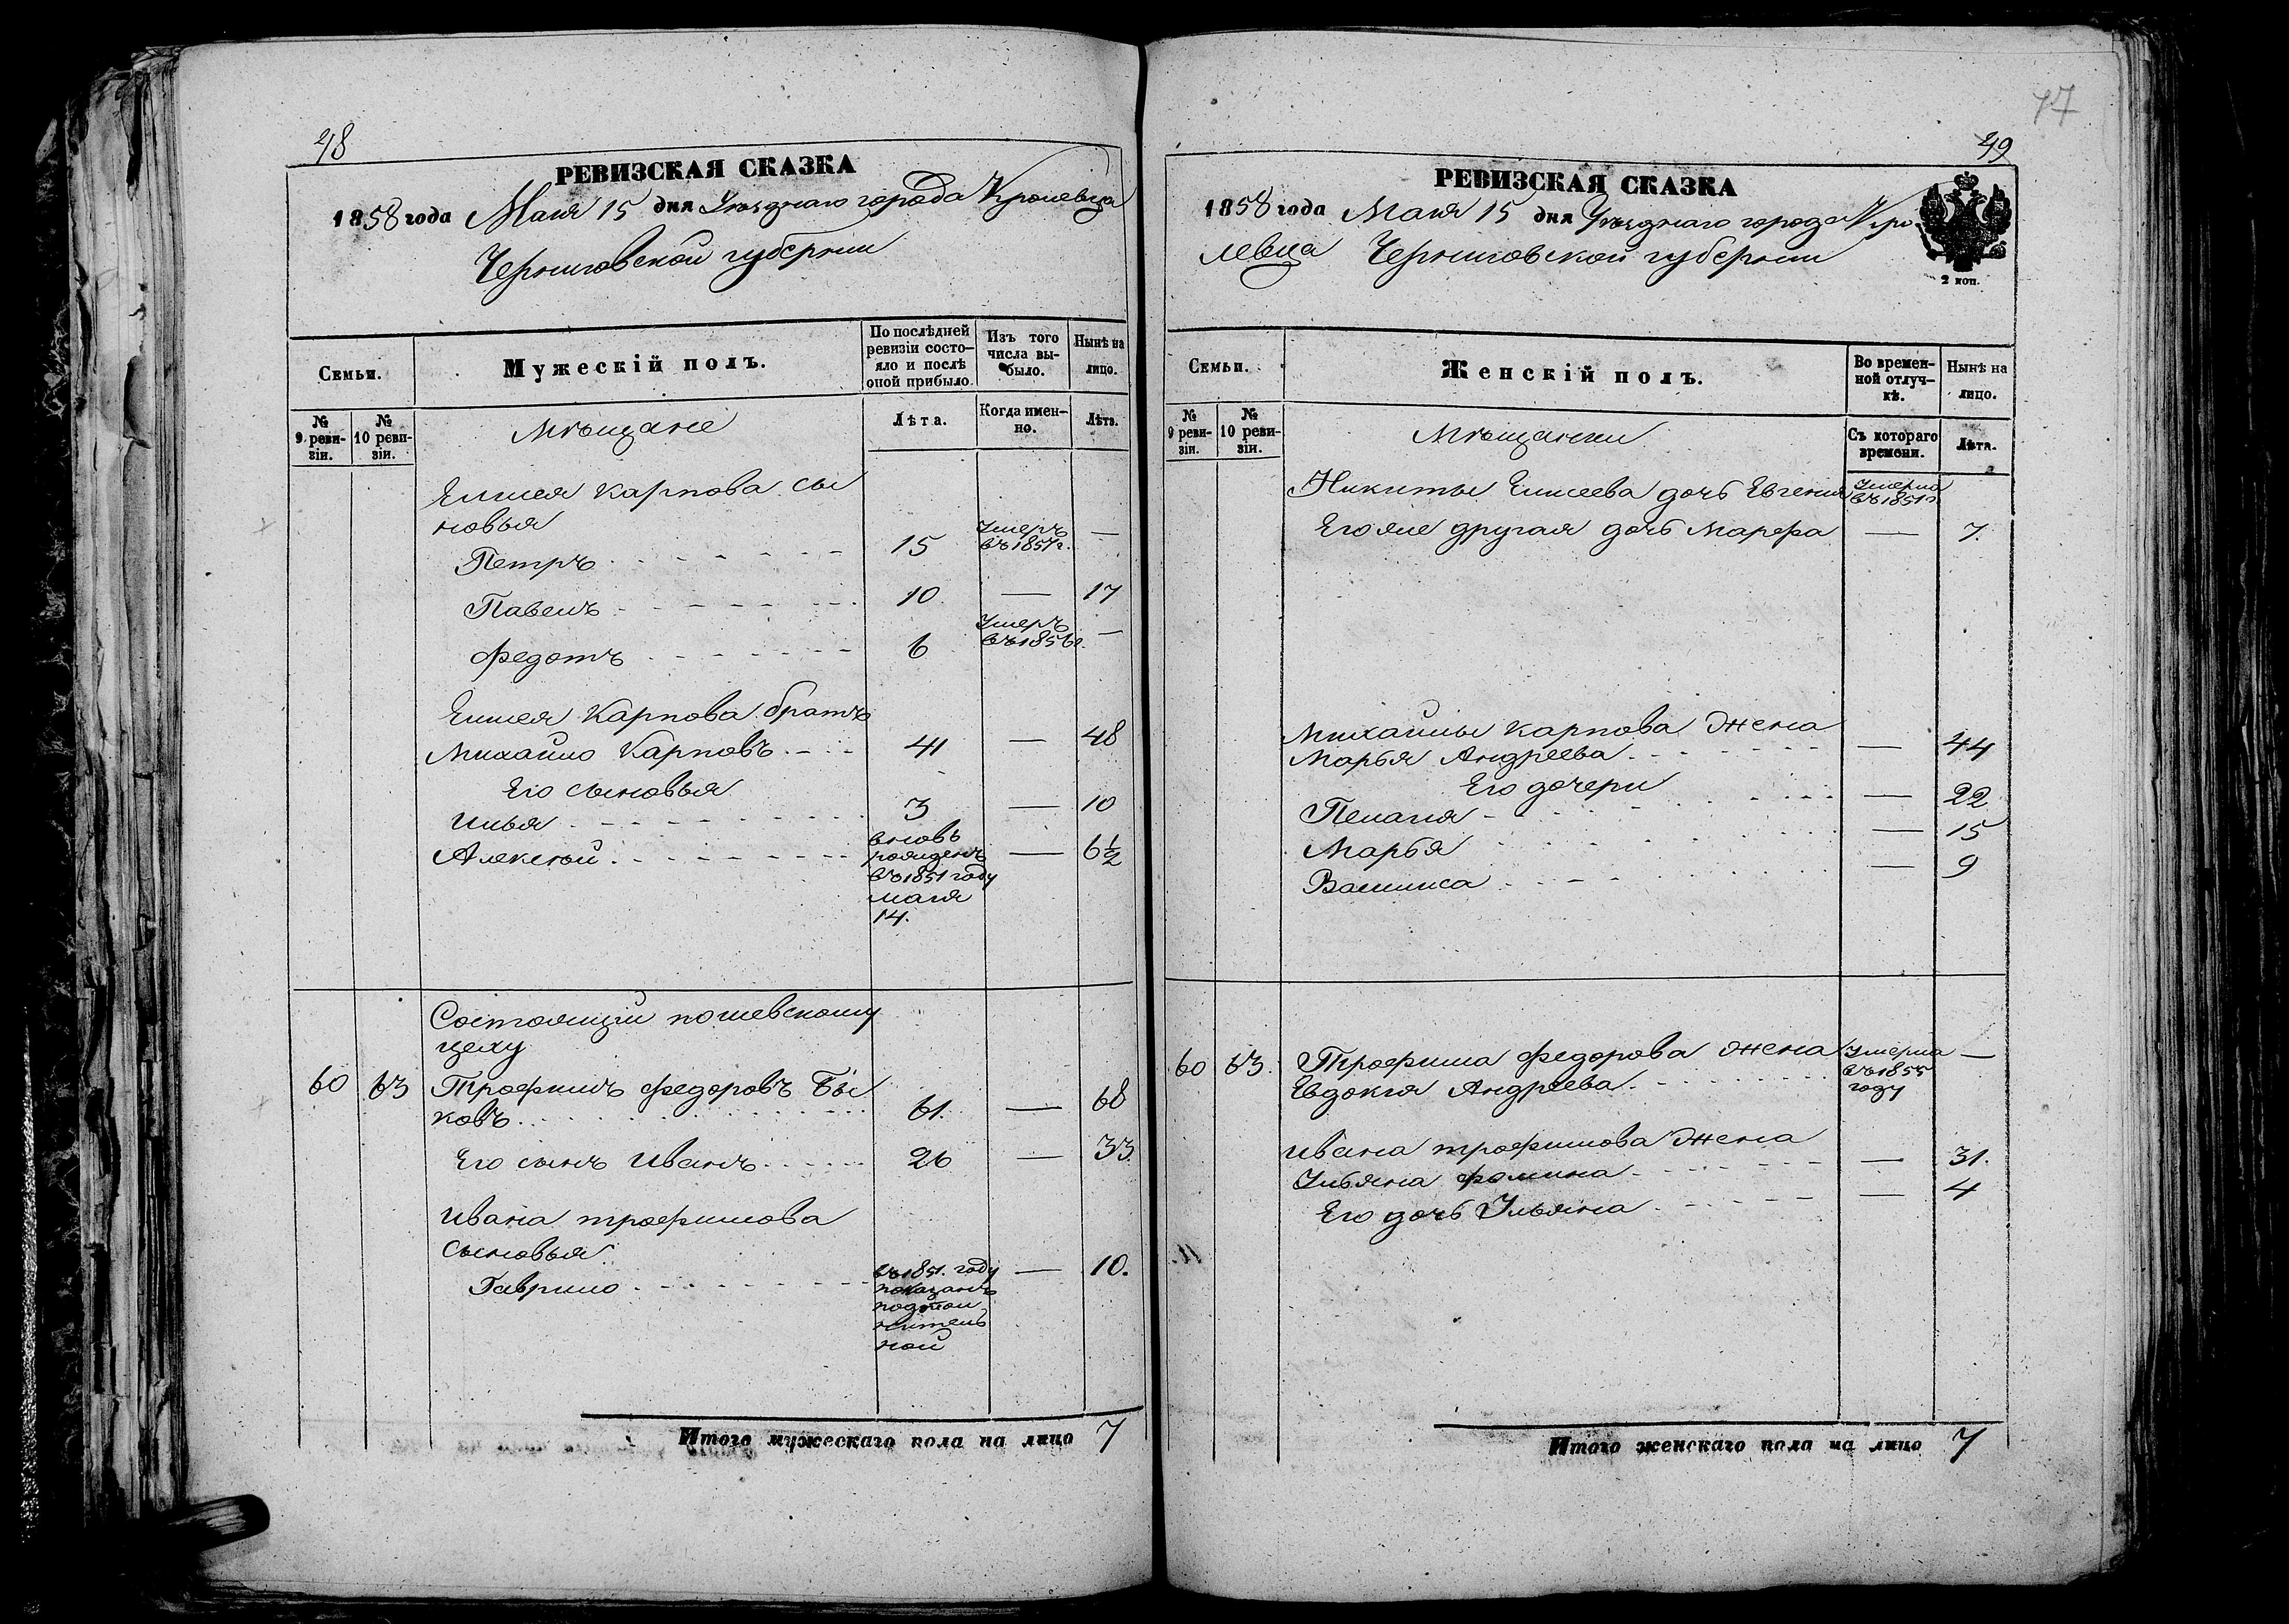 48
РЕВИЗСКАЯ СКАЗКА
1858 года Маія 15 дня Уѣзднаго города Кролевца
Черниговской губерніи
Семьи.
Мужескій полъ.
По послѣдней ревизіи состояло и послѣ оной прибыло.
Изъ того числа выбыло.
Нынѣ на лицо.
№ 9 ревизіи.
№ 10 ревизіи.
Мѣщане
Лѣта.
Когда именно.
Лѣта.
Елисея Карпова сы
новья
Петръ 15 Умеръ въ 1857 г. —
Павелъ 10. — 17
Федотъ 6 Умеръ въ 1856 г. —
Елисея Карпова братъ
Михайло Карповъ 41 — 48
Его сыновья
Илья 3 — 10
Алексѣй вновь — 6½
рожденъ
въ 1851 году
маія
14.
Состоящій по шевскому
цеху
60 63 Трофимъ Федоровъ Бы
ковъ 61. — 68
Его сынъ Иванъ 26 — 33
Ивана Трофимова
сыновья
Гаврило въ 1851. году — 10.
показанъ
по
нитель
ной
Итого мужескаго пола на лицо 7
77
49
РЕВИЗСКАЯ СКАЗКА
1858 года Маія 15 дня Уѣзднаго города Кро
левца Черниговской губерніи
2 коп.
Семьи.
Женскій полъ.
Во временной отлучкѣ.
Нынѣ на лицо.
№ 9 ревизіи.
№ 10 ревизіи.
Мѣщанки
Съ котораго времени.
Лѣта.
Никиты Елисеева дочь Евгенія Умерла въ 1851 г.
Его же другая дочь Марфа — 7.
Михайлы Карпова жена
Марья Андреева — 44
Его дочери
Пелагія — 22
Марья — 15
Василиса — 9
60 63. Трофима Федорова жена Умерла —
Евдокія Андреева въ 1855
году
Ивана Трофимова жена
Ульяна Фомина — 31.
Его дочь Ульяна — 4
Итого женскаго пола на лицо 7